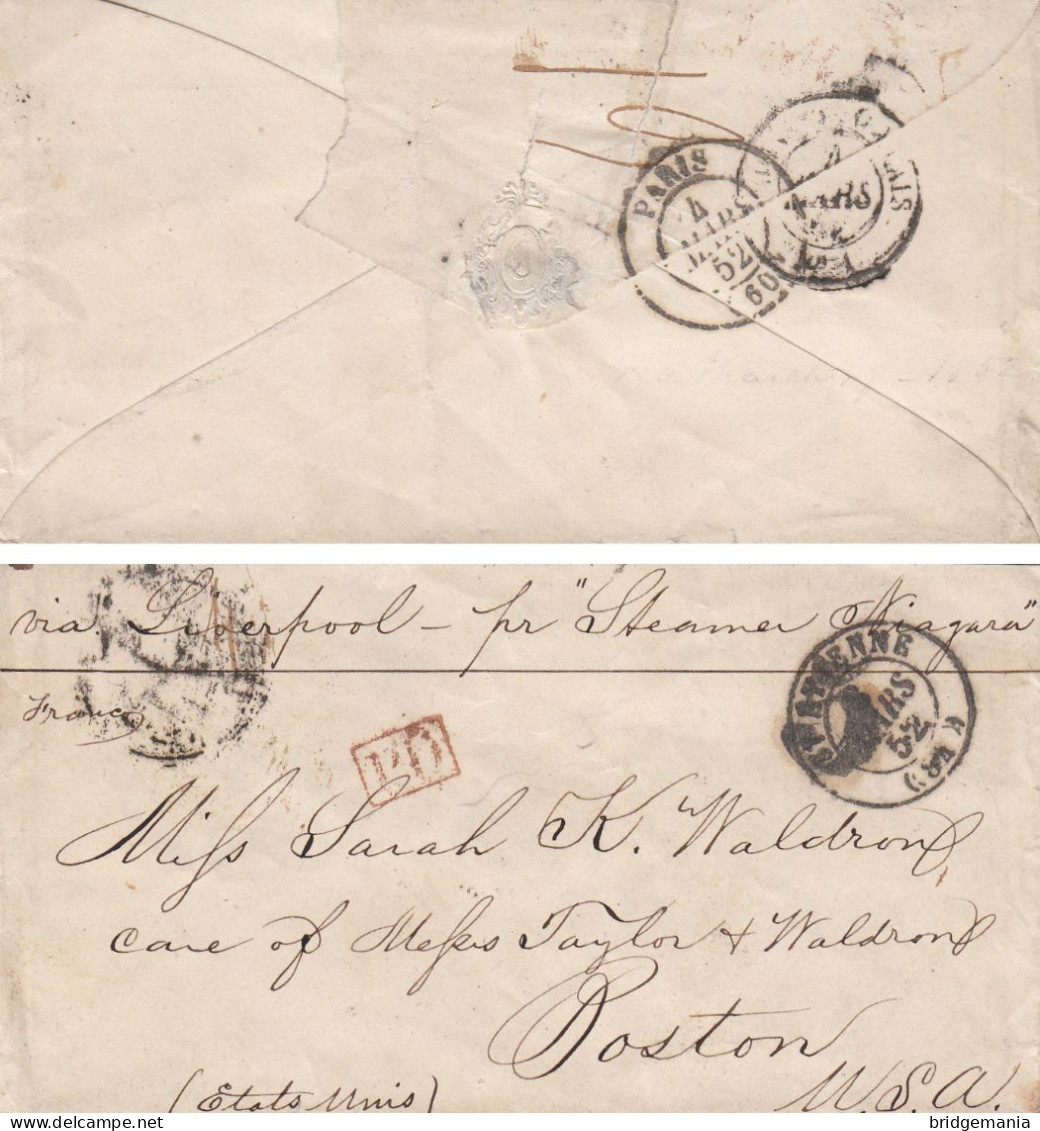 PARIS
4
MARS
52
60
4
MARS
via Liverpool - pr "Steamer Niagara"
Franco
PD
ST ETIENNE
MARS
52
Miss Sarah K. Waldron
care of Messrs Taylor & Waldron
Boston
U.S.A.
(Etats Unis)
bridgemania